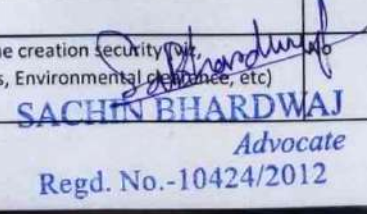 e creation security (viz,
s, Environmental clearance, etc)
SACHIN BHARDWAJ
Advocate
Regd. No.-10424/2012